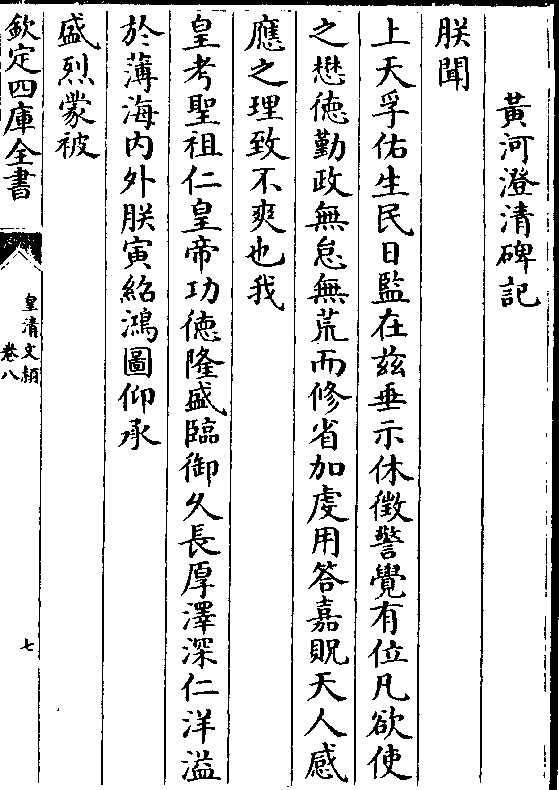 黃河澄清碑記
朕聞
上天孚佑生民日監在兹垂示休徵警覺有位凡欲使
之懋徳勤政無怠無荒而修省加虔用答嘉貺天人感
應之理致不爽也我
皇考聖祖仁皇帝功徳隆盛臨御久長厚澤深仁洋溢
於薄海内外朕寅紹鴻圖仰承
盛烈蒙被
欽定四庫全書
皇清文頴
卷八
七